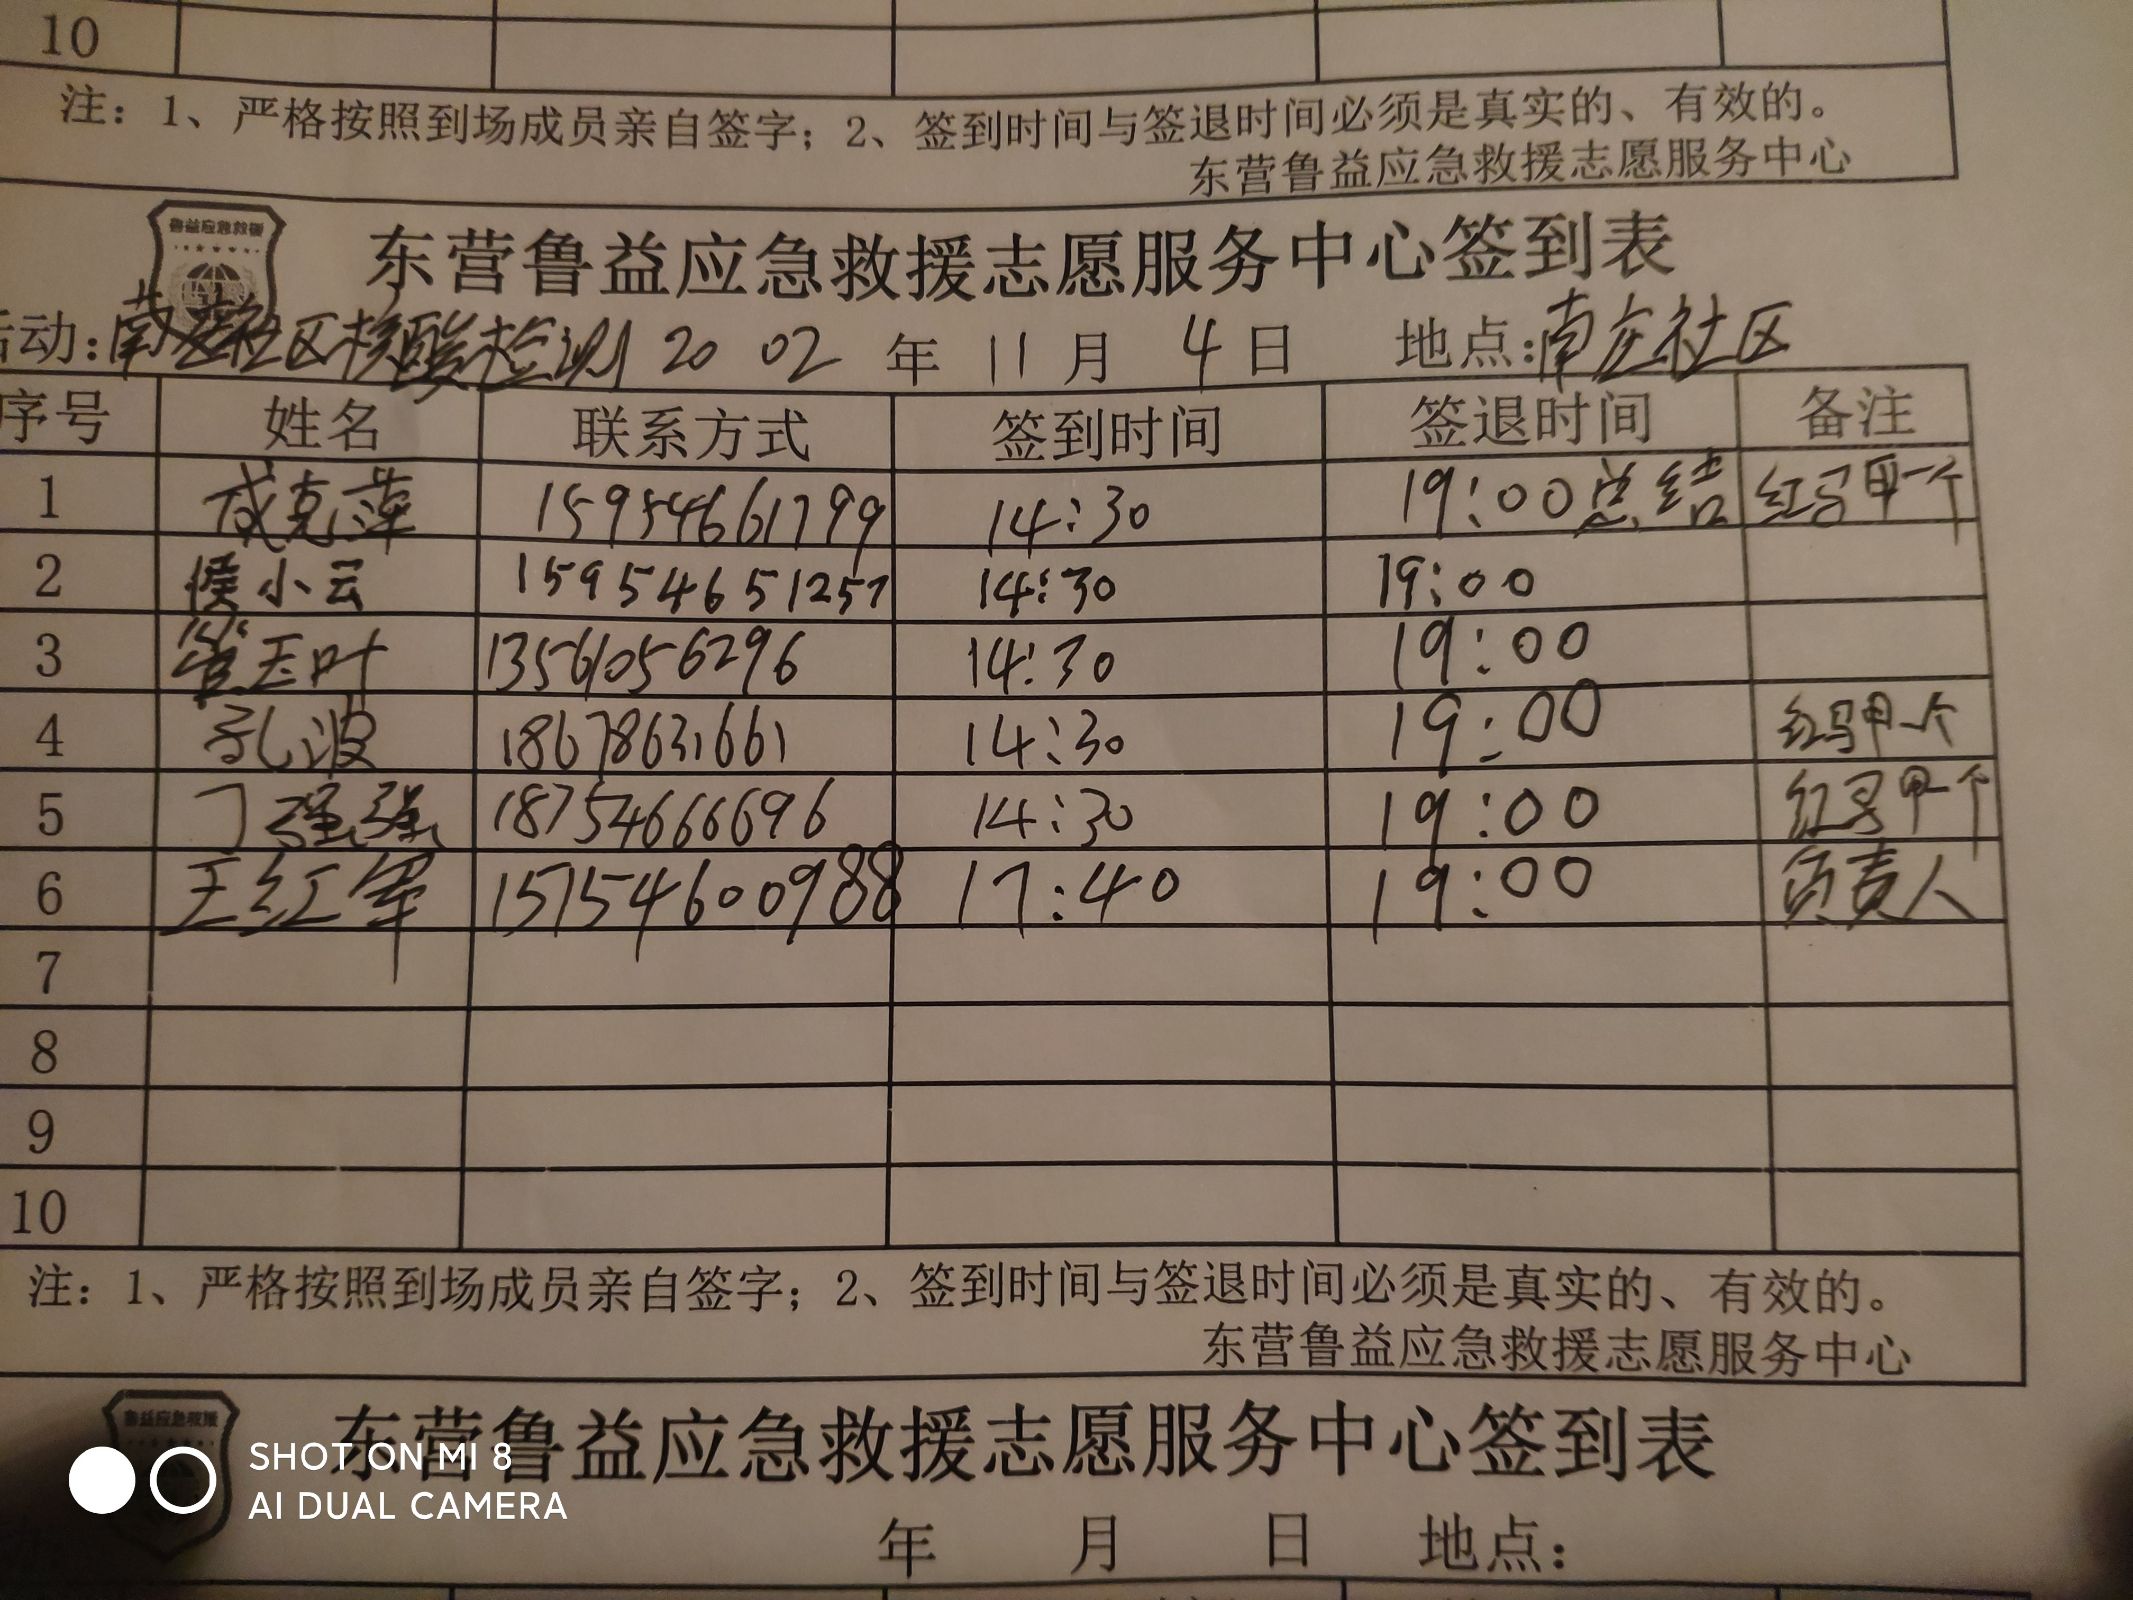 10
注：1、严格按照到场成员亲自签字；2、签到时间与签退时间必须是真实的、有效的。
东营鲁益应急救援志愿服务中心
鲁益应急救援
东营鲁益应急救援志愿服务中心签到表
活动：南庄社区核酸检测 2002年11月4日 地点：南庄社区
序号 姓名 联系方式 签到时间 签退时间 备注
1 成克萍 15954661799 14:30 19:00总结 红马甲一个
2 侯小云 15954651257 14:30 19:00
3 管玉叶 13561056296 14:30 19:00
4 孔波 18678631661 14:30 19:00 红马甲一个
5 丁强强 18754666696 14:30 19:00 红马甲一个
6 王红军 15754600988 17:40 19:00 负责人
7
8
9
10
注：1、严格按照到场成员亲自签字；2、签到时间与签退时间必须是真实的、有效的。
东营鲁益应急救援志愿服务中心
鲁益应急救援
东营鲁益应急救援志愿服务中心签到表
SHOT ON MI 8
AI DUAL CAMERA
年 月 日 地点：